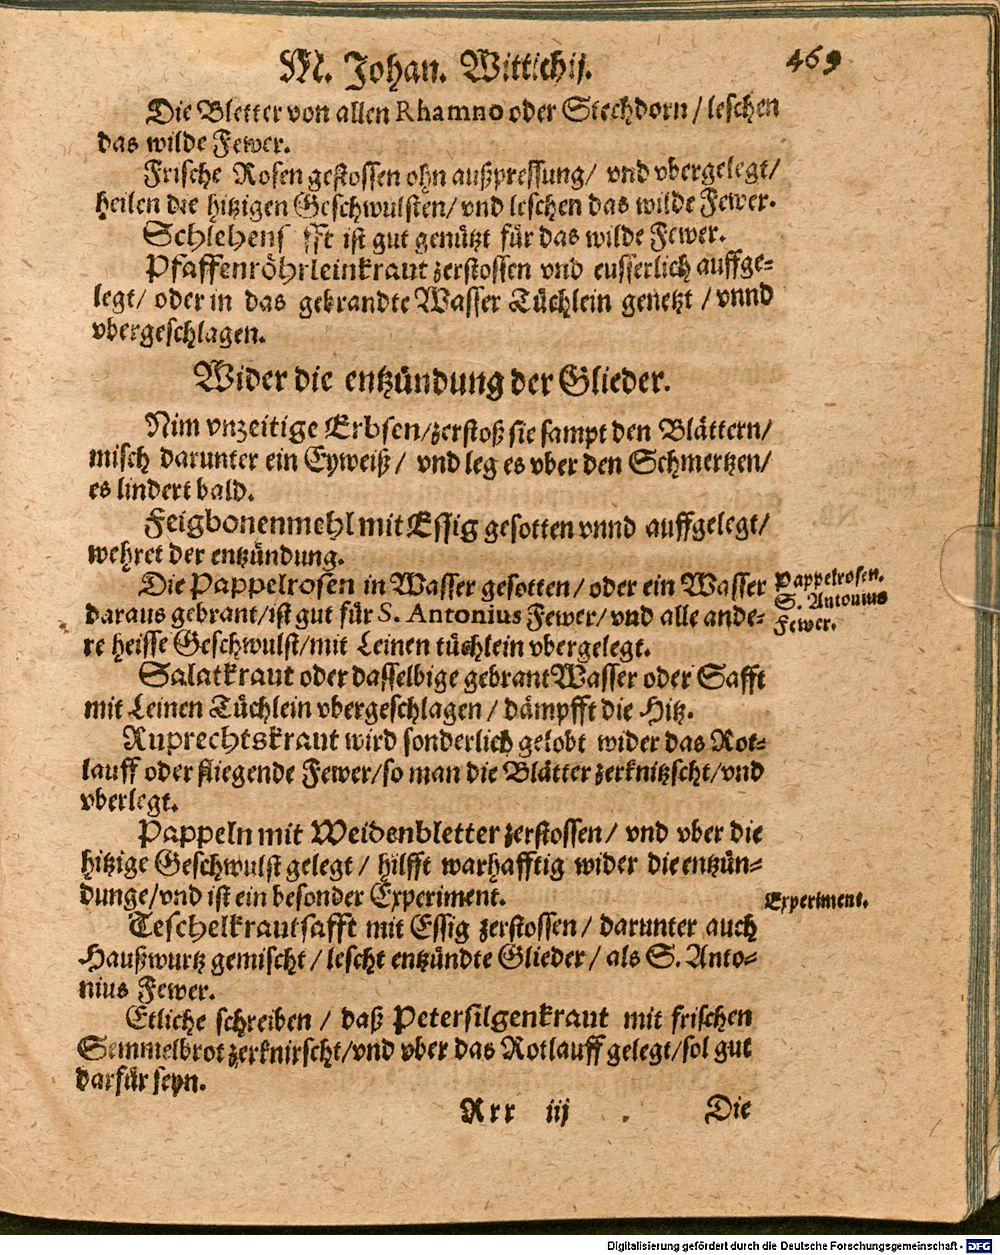 M. Johan. Wittichij. 469
Die Bletter von allen Rhamno oder Stechdorn / leschen
das wilde Fewer.
Frische Rosen gestossen ohn außpressung / vnd vbergelegt /
heilen die hitzigen Geschwulsten / vnd leschen das wilde Fewer.
Schlehens fft ist gut genützt für das wilde Fewer.
Pfaffenröhrleinkraut zerstossen vnd eusserlich auffge-
legt / oder in das gebrandte Wasser Tüchlein genetzt / vnnd
vbergeschlagen.
Wider die entzündung der Glieder.
Nim vnzeitige Erbsen / zerstoß sie sampt den Blättern /
misch darunter ein Eyweiß / vnd leg es vber den Schmertzen /
es lindert bald.
Feigbonenmehl mit Essig gesotten vnnd auffgelegt /
wehret der entzündung.
Die Pappelrosen in Wasser gesotten / oder ein Wasser
daraus gebrant / ist gut für S. Antonius Fewer / vnd alle ande-
re heisse Geschwulst / mit Leinen tüchlein vbergelegt.
Pappelrosen.
S. Antonius
Fewer.
Salatkraut oder dasselbige gebrant Wasser oder Safft
mit Leinen Tüchlein vbergeschlagen / dämpfft die Hitz.
Ruprechtskraut wird sonderlich gelobt wider das Rot-
lauff oder fliegende Fewer / so man die Blätter zerknitzscht / vnd
vberlegt.
Pappeln mit Weidenbletter zerstossen / vnd vber die
hitzige Geschwulst gelegt / hilfft warhafftig wider die entzün-
dunge / vnd ist ein besonder Experiment.
Experiment.
Teschelkrautsafft mit Essig zerstossen / darunter auch
Haußwurtz gemischt / lescht entzündte Glieder / als S. Anto-
nius Fewer.
Etliche schreiben / daß Petersilgenkraut mit frischen
Semmelbrot zerknirscht / vnd vber das Rotlauff gelegt / sol gut
darfür seyn.
Rrr iij
Die
Digitalisierung gefördert durch die Deutsche Forschungsgemeinschaft - DFG